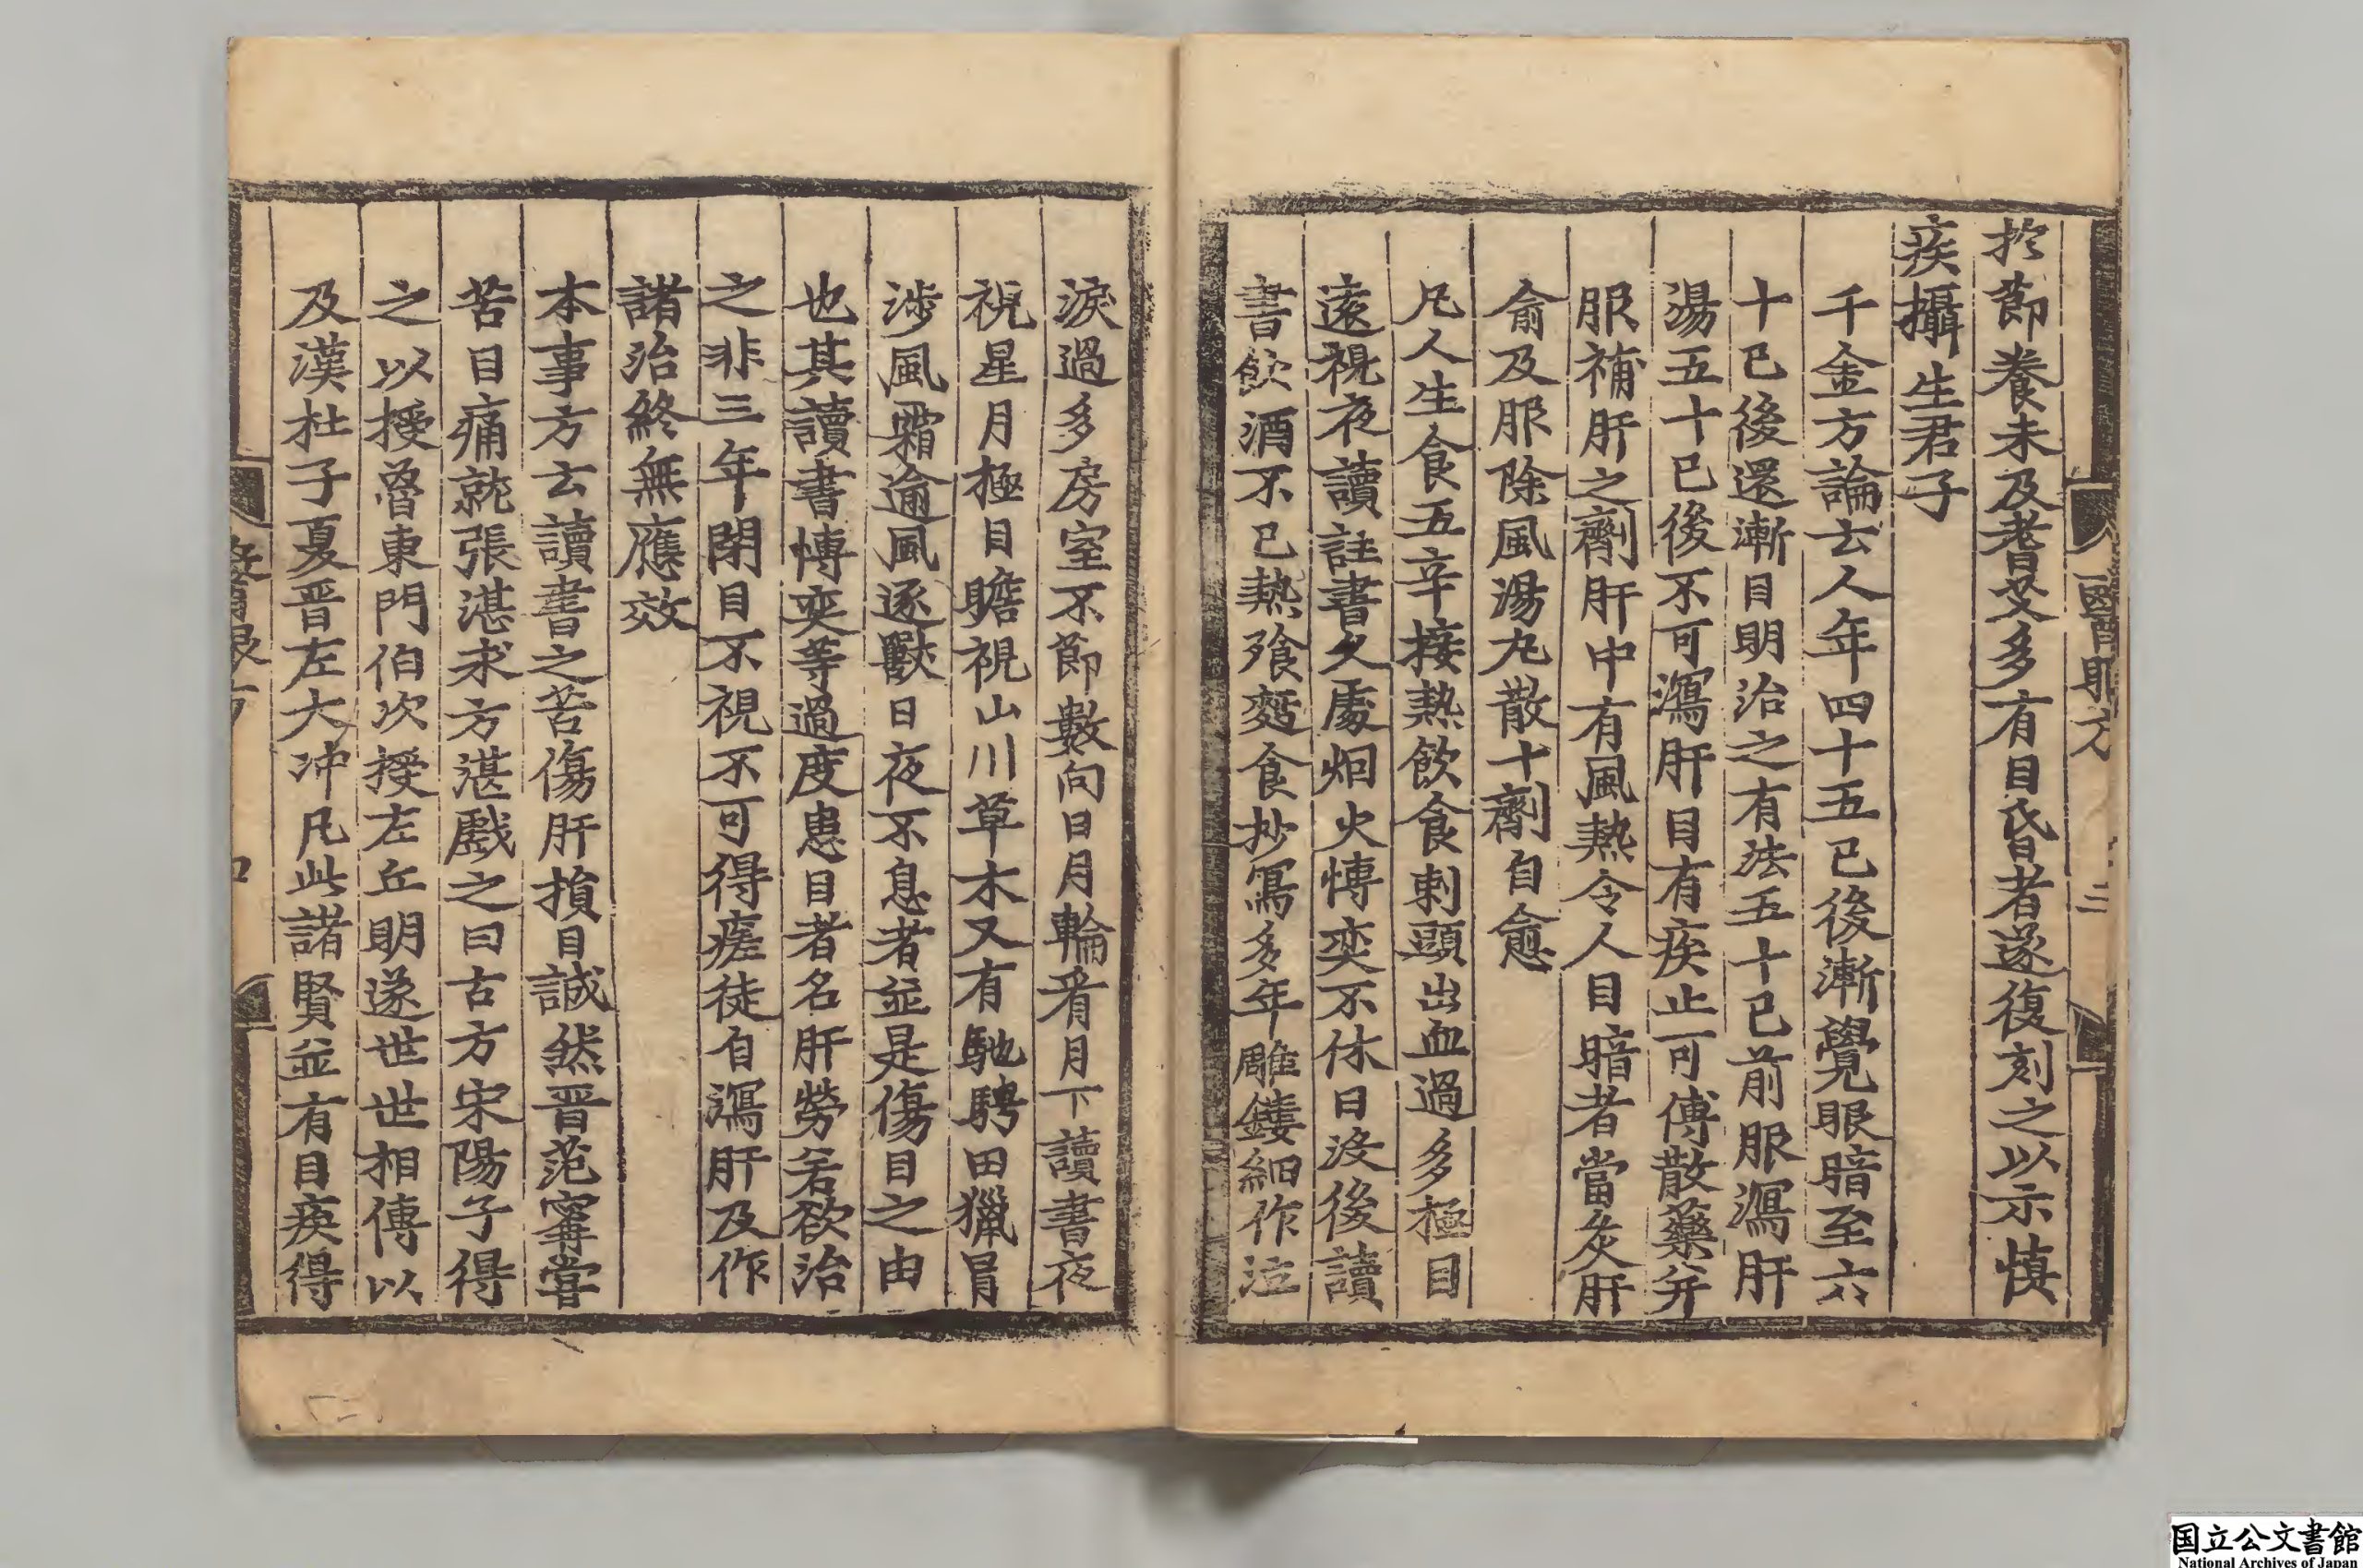 醫眼方 三
扵節養未及耆艾多有目昏者遂復刻之以示慎
疾攝生君子
千金方論云人年四十五已後漸覺眼暗至六
十已後還漸目明治之有法五十已前服瀉肝
湯五十已後不可瀉肝目有疾止可傅散藥并
服補肝之劑肝中有風熱令人目暗者當灸肝
俞及服除風湯丸散十劑自愈
凡人生食五辛接熱飲食剌頭出血過多極目
遠視夜讀註書久處烟火博奕不休日沒後讀
書飲酒不已熱飡麪食抄寫多年雕鏤細作泣
淚過多房室不節數向日月輪看月下讀書夜
視星月極目瞻視山川草木又有馳騁田獵冒
涉風霜逾風逐獸日夜不息者並是傷目之由
也其讀書博奕等過度患目者名肝勞若欲治
之非三年閉目不視不可得瘥徒自瀉肝及作
諸治終無應效
本事方云讀書之苦傷肝損目誠然晋范甯嘗
苦目痛就張湛求方湛戲之曰古方宋陽子得
之以授魯東門伯次授左丘明遂世世相傳以
及漢杜子夏晋左大冲凡此諸賢並有目疾得